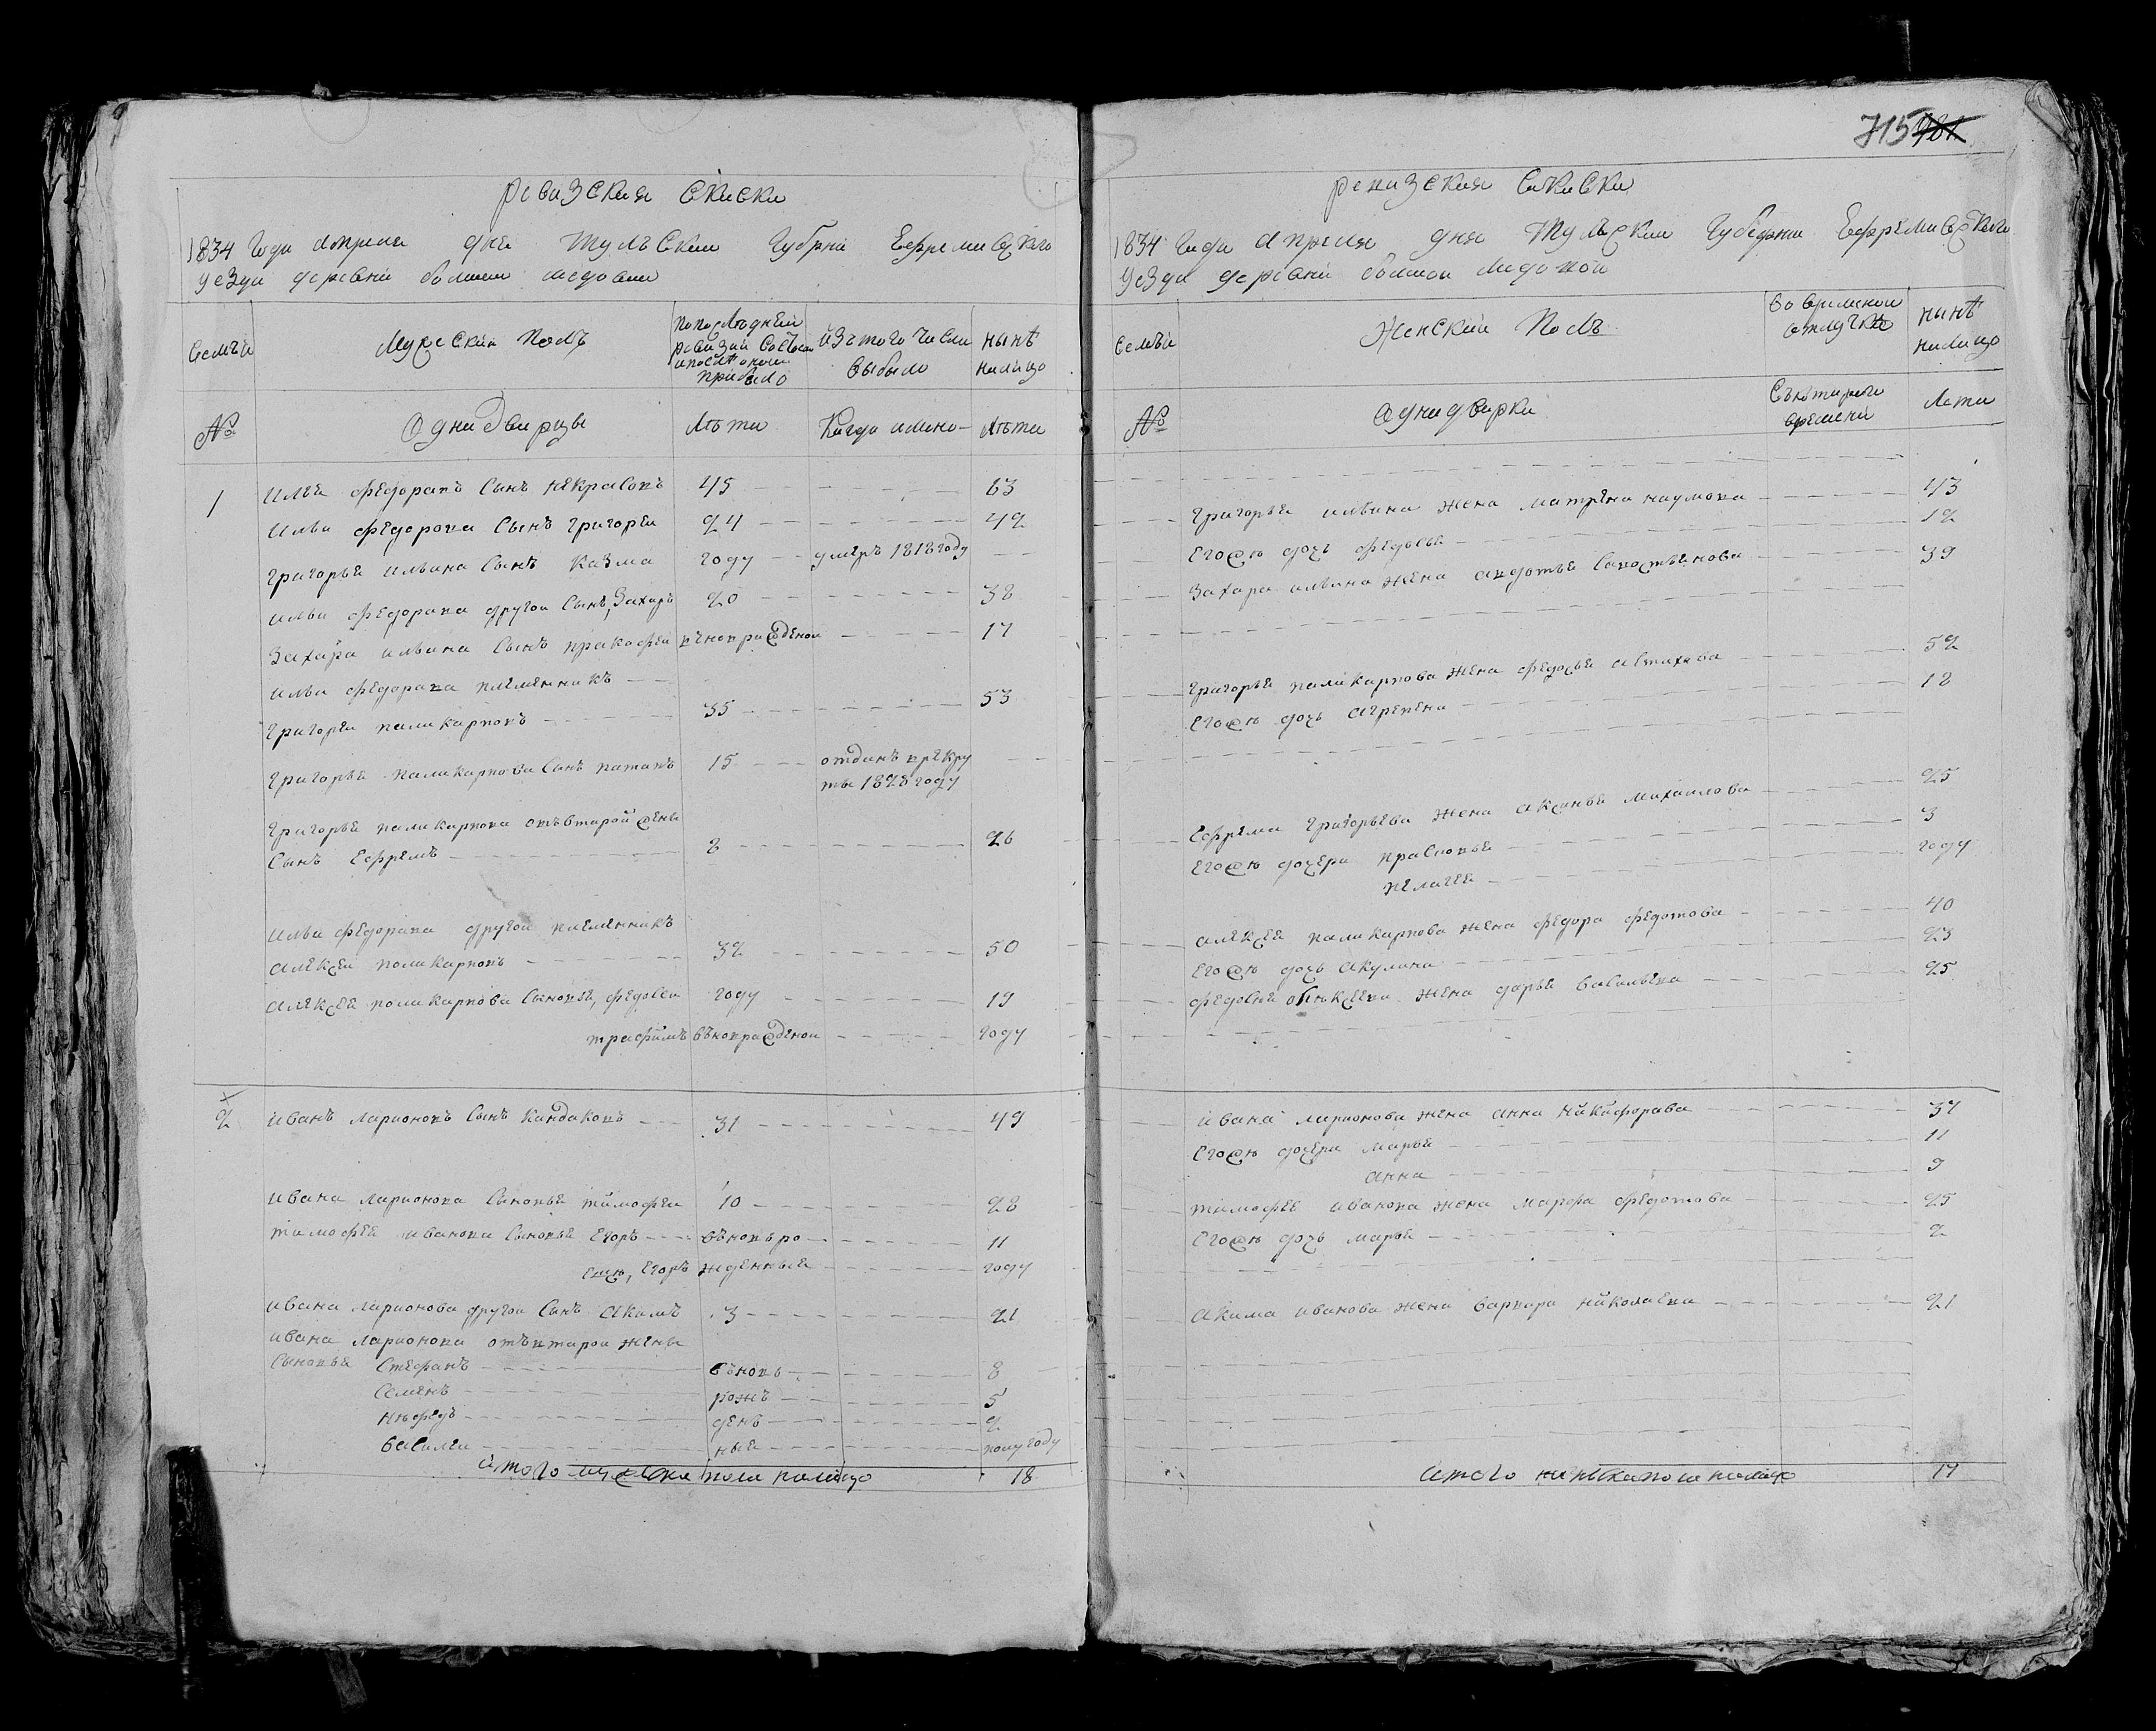 715 481
ревизская скиска
1834 года апреля дня Тульскои губрни Ефремовскаго
уезда деревни большои медовои
семьи
Мужескии полъ
по последней ревизии состояло и после оной прибыло
изъ того числа выбыло
ныне на лицо
№
Однадворцы
лѣта
Когда имяно
лѣта
1 илья федоравъ сынъ некрасовъ 45 63
ильи федорова сынъ григореи 24 42
григорья ильина сынъ казма году умеръ 1818 году
ильи федорава другои сынъ, захаръ 20 38
захара ильина сынъ пракофеи вънопражденои 17
ильи федорава племенникъ
григореи паликарповъ 35 53
григорья паликарпова сынъ патапъ 15 отданъ врекру
ты 1828 году
григорья паликарпова отъвтарой жены
сынъ ефремъ 8 26
ильи федорава другои племенникъ
алексеи поликарповъ 32 50
алексея поликарпова сыновья, федосеи году 19
трафимъ вънопражденои году
2 иванъ ларионовъ сынъ кандаковъ 31 49
ивана ларионова сыновья тимофеи 10 28
тимофея иванова сыновья егоръ вѣновъро 11
еще, егоръ жденныя году
ивана ларионова другои сынъ акимъ 3 21
ивана ларионова отъвтарои жены
сыновья стефанъ вѣновь 8
семенъ рожъ 5
нефедъ денъ 2
василеи ныя полугоду
итого мужеска пола налицо 18
ревизская скиска
1834 года апреля дня Тульскои губернии Ефремовскаго
уезда деревни большои медовои
семьи
Женскии полъ
во временои отлучкѣ
нынѣ налицо
№
однадварки
съкотораго времени
лета
григорья ильина жена матрена наумова 43
егожъ дочь федосья 12
захара ильина жена авдотья савостьянова 39
григорья паликарпова жена федосья астахова 52
егожъ дочь агрепена 18
ефрема григорьева жена аксинья михаилова 25
егожъ дочери прасковья 3
пелагея году
алексея паликарпова жена федора федотова 40
егожъ дочь акулина 23
федосея алексеева жена дарья васильева 25
ивана ларионова жена анна никифорава 37
егожъ дочери марья 11
анна 9
тимофея иванова жена марфа федотова 25
егожъ дочь марья 2
акима иванова жена варвара николаева 21
итого женска пола налицо 17